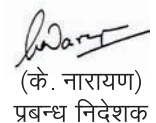 (के. नारायण)
प्रबन्ध निदेशक